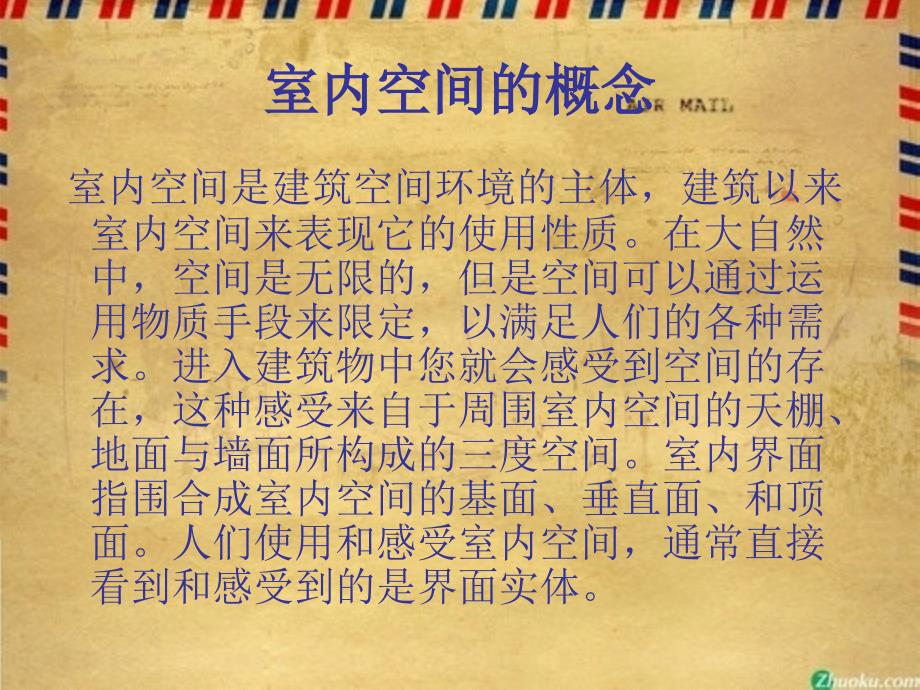 室内空间的概念
AIR MAIL
室内空间是建筑空间环境的主体，建筑以来
室内空间来表现它的使用性质。在大自然
中，空间是无限的，但是空间可以通过运
用物质手段来限定，以满足人们的各种需
求。进入建筑物中您就会感受到空间的存
在，这种感受来自于周围室内空间的天棚、
地面与墙面所构成的三度空间。室内界面
指围合成室内空间的基面、垂直面、和顶
面。人们使用和感受室内空间，通常直接
看到和感受到的是界面实体。
Zhuoku.com